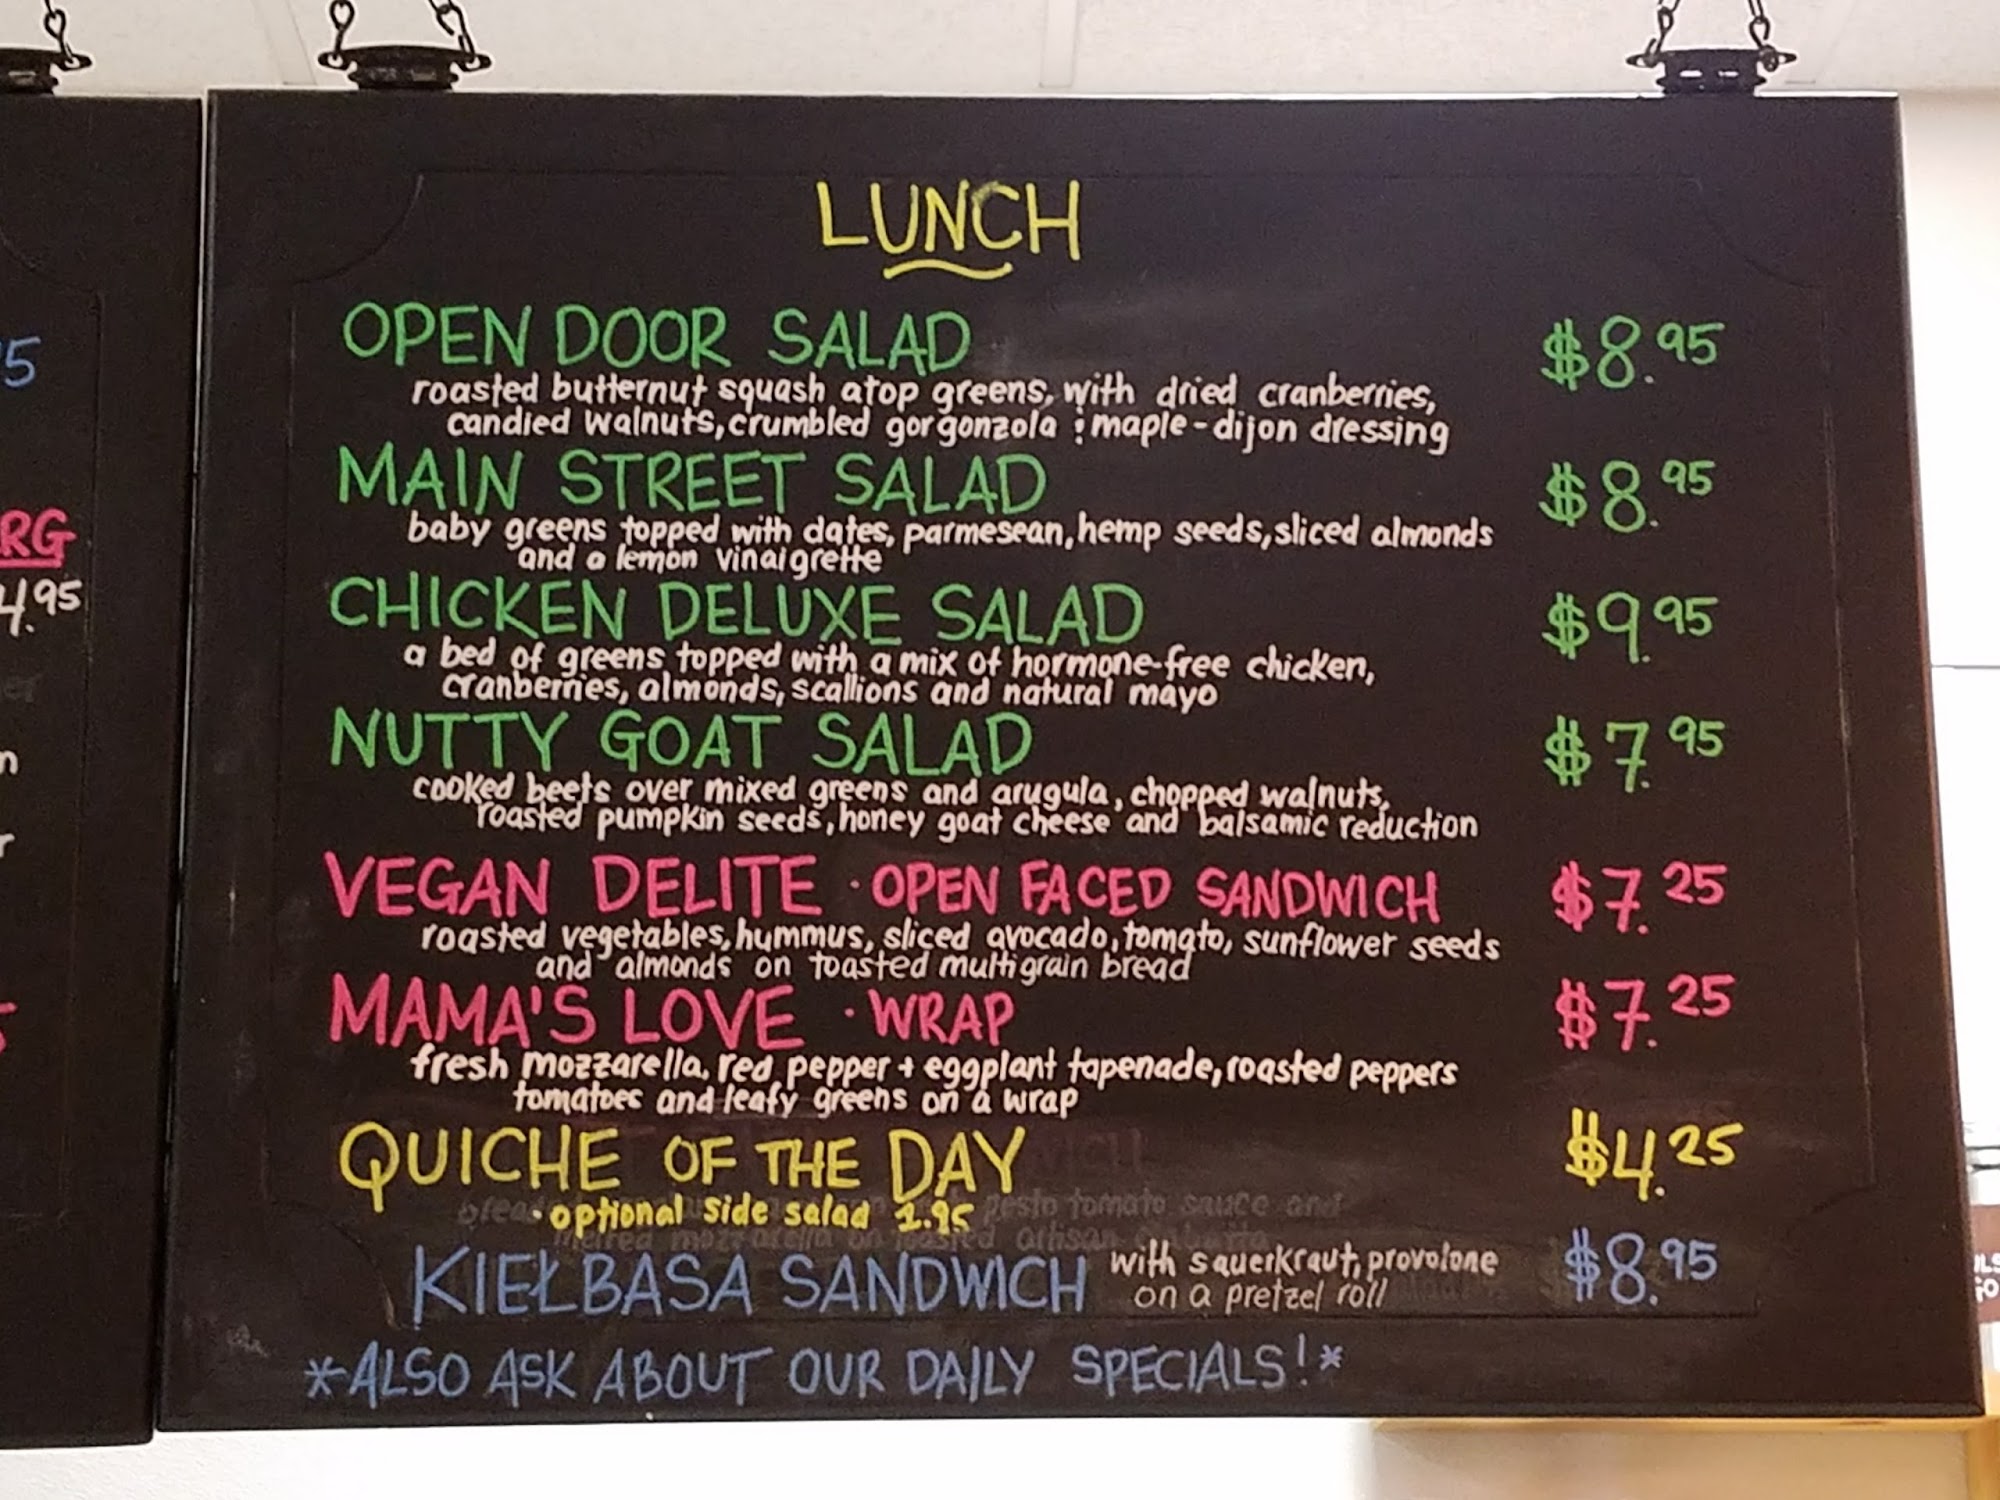 LUNCH
OPEN DOOR SALAD $8.95
roasted butternut squash atop greens, with dried cranberries,
candied walnuts, crumbled gorgonzola & maple-dijon dressing
MAIN STREET SALAD $8.95
baby greens topped with dates, parmesean, hemp seeds, sliced almonds
and a lemon vinaigrette
CHICKEN DELUXE SALAD $9.95
a bed of greens topped with a mix of hormone-free chicken,
cranberries, almonds, scallions and natural mayo
NUTTY GOAT SALAD $7.95
cooked beets over mixed greens and arugula, chopped walnuts,
roasted pumpkin seeds, honey goat cheese and balsamic reduction
VEGAN DELITE · OPEN FACED SANDWICH $7.25
roasted vegetables, hummus, sliced avocado, tomato, sunflower seeds
and almonds on toasted multigrain bread
MAMA'S LOVE · WRAP $7.25
fresh mozzarella, red pepper + eggplant tapenade, roasted peppers
tomatoes and leafy greens on a wrap
QUICHE OF THE DAY $4.25
· optional side salad 2.95
pesto tomato sauce and
melted mozzarella on toasted artisan
KIEŁBASA SANDWICH with sauerkraut, provolone $8.95
on a pretzel roll
*ALSO ASK ABOUT OUR DAILY SPECIALS!*
RG
4.95